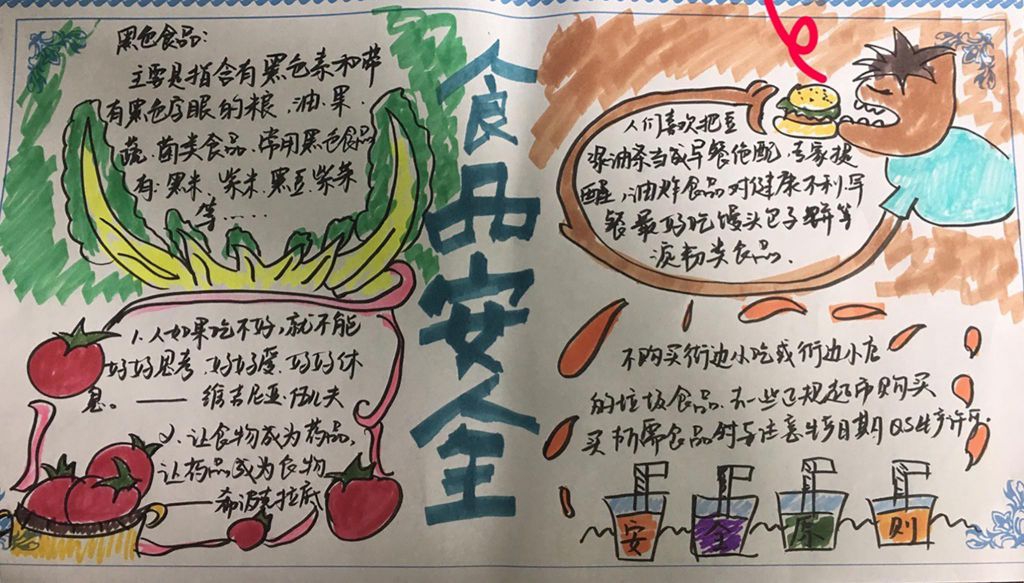 黑色食品:
主要是指含有黑色素和带
有黑色字眼的粮、油、果、
蔬、菌类食品、常用黑色食品
有:黑米、紫米、黑豆、紫菜
等……
1.人如果吃不好,就不能
好好思考,好好爱,好好休
息。——维吉尼亚·伍尔夫
2、让食物成为药品,
让药品成为食物
——希波克拉底
食品安全
人们喜欢把豆
浆油条当成早餐绝配,专家提
醒,油炸食品对健康不利,早
餐最好吃馒头包子饼等
淀粉类食品.
不购买街边小吃或街边小店
的垃圾食品.去一些正规超市购买
买所需食品时要注意生产日期QS生产许可.
安全原则